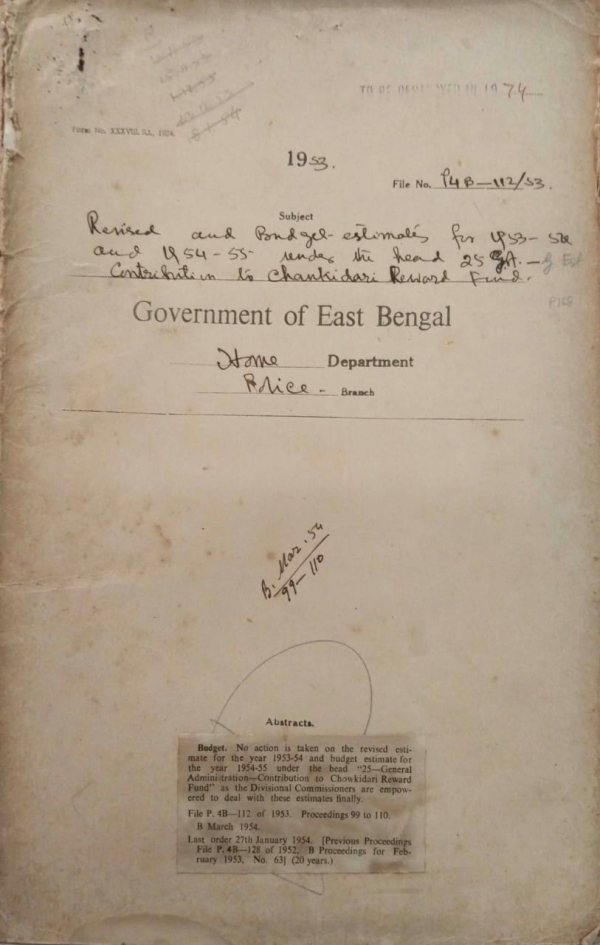 TO BE DESTROYED IN 1974
Form No. XXXVIII
1953.
File No. P4B—112/53.
Subject
Revised and Budget estimates for 1953-54
and 1954-55 under the head 25 GA.—
Contribution to Chaukidari Reward Fund.
Government of East Bengal
Home Department
Police - Branch
B. Mar. 54
99-110
Abstracts.
Budget. No action is taken on the revised esti-
mate for the year 1953-54 and budget estimate for
the year 1954-55 under the head "25—General
Administration—Contribution to Chowkidari Reward
Fund" as the Divisional Commissioners are empow-
ered to deal with these estimates finally.
File P. 4B—112 of 1953. Proceedings 99 to 110.
B March 1954.
Last order 27th January 1954. [Previous Proceedings
File P. 4B—128 of 1952, B Proceedings for Feb-
ruary 1953, No. 63] (20 years.)